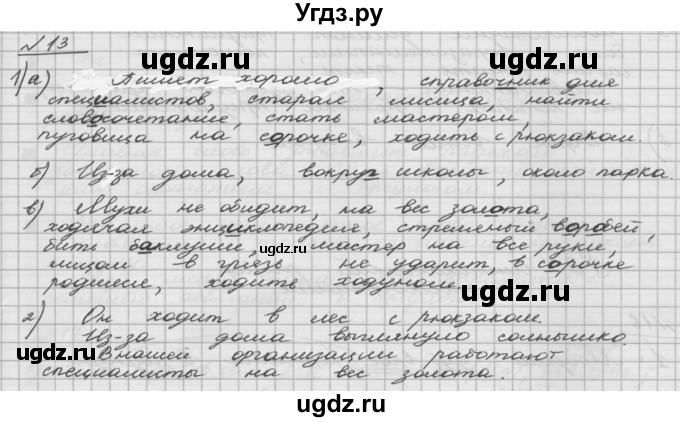 Угдз.ру
№ 13
1) а) Пишет хорошо, справочник для
специалистов, старая лисица, найти
словосочетание, стать мастером,
пуговица на сорочке, ходить с рюкзаком.
б) Из-за дома, вокруг школы, около парка.
в) Мухи не обидит, на вес золота,
ходячая энциклопедия, стреляный воробей,
бить баклуши, мастер на все руки,
лицом в грязь не ударит, в сорочке
родился, ходить ходуном.
г) Он ходит в лес с рюкзаком.
Из-за дома выглянуло солнышко.
В нашей организации работают
специалисты на вес золота.
ugdz.ru
ugdz.ru
ugdz.ru
ugdz.ru
ugdz.ru
ugdz.ru
ugdz.ru
ugdz.ru
ugdz.ru
ugdz.ru
ugdz.ru
ugdz.ru